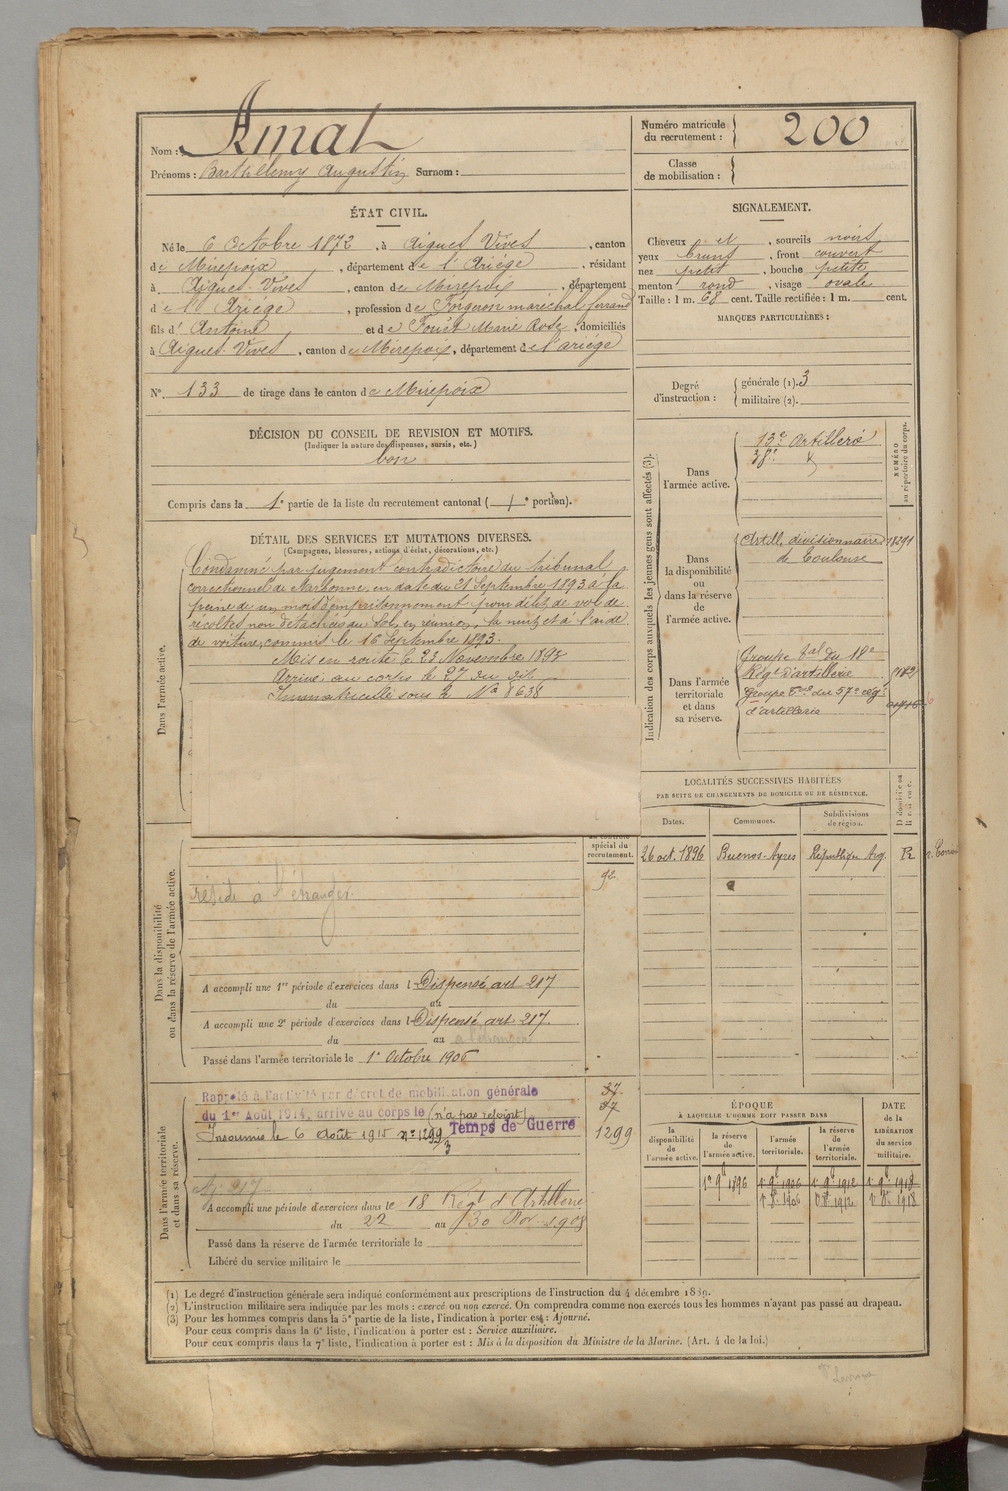 Nom : Amat
Prénoms : Barthélemy Augustin Surnom :
Numéro matricule du recrutement : 200
Classe de mobilisation :
ÉTAT CIVIL.
Né le 6 Octobre 1872, à Aigues Vives, canton
de Mirepoix, département de l'Ariége, résidant
à Aigues-Vives, canton de Mirepoix, département
de l'Ariége, profession de Forgeron maréchal ferrand
fils d'Antoine et de Fouet Marie Rose, domiciliés
à Aigues-Vives, canton de Mirepoix, département de l'ariege
N° 133 de tirage dans le canton de Mirepoix
DÉCISION DU CONSEIL DE REVISION ET MOTIFS.
(Indiquer la nature des dispenses, sursis, etc.)
bon
Compris dans la 1e partie de la liste du recrutement cantonal ( e portion).
SIGNALEMENT.
Cheveux et, sourcils noirs
yeux bruns, front couvert
nez petit, bouche petite
menton rond, visage ovale
Taille : 1 m. 68 cent. Taille rectifiée : 1 m. cent.
MARQUES PARTICULIÈRES :
Degré d'instruction :
générale (1). 3
militaire (2).
DÉTAIL DES SERVICES ET MUTATIONS DIVERSES.
(Campagnes, blessures, actions d'éclat, décorations, etc.)
Dans l'armée active.
Condamné par jugement contradictoire du tribunal
correctionnel de Narbonne, en date du 21 Septembre 1893 à la
peine de un mois d'emprisonnement pour délit de vol de
récoltes non détachées du sol, en réunion, la nuit et à l'aide
de voiture, commis le 16 Septembre 1893.
Mis en route le 23 Novembre 1893
Arrivé au corps le 27 du dit
Immatriculé sous le N° 8638
Indication des corps auxquels les jeunes gens sont affectés (3).
NUMÉRO au répertoire du corps.
Dans l'armée active.
13e Artillerie
38e
Dans la disponibilité ou dans la réserve de l'armée active.
Artill. divisionnaire 18291
de Toulouse
Dans l'armée territoriale et dans sa réserve.
Groupe tal du 18e
Régt d'artillerie
Groupe tal du 57e rég
d'artillerie
LOCALITÉS SUCCESSIVES HABITÉES
PAR SUITE DE CHANGEMENTS DE DOMICILE OU DE RÉSIDENCE.
Dates. Communes. Subdivisions de région. D domicile ou R résidence.
26 oct. 1896 Buenos-Ayres République Arg. R
spécial du recrutement.
92
Dans la disponibilité ou dans la réserve de l'armée active.
réside à l'étranger
A accompli une 1re période d'exercices dans l Dispensé art 217
du au
A accompli une 2e période d'exercices dans l Dispensé art 217
du au à l'étranger
Passé dans l'armée territoriale le 1er Octobre 1906
Dans l'armée territoriale et dans sa réserve.
Rappelé à l'activité par décret de mobilisation générale
du 1er Août 1914, arrivé au corps le (n'a pas rejoint)
Insoumis le 6 Août 1915 n° 1299/3 Temps de Guerre
37
37
1299
217
A accompli une période d'exercices dans le 18 Régt d'Artillerie
du 22 au 30 Nov
Passé dans la réserve de l'armée territoriale le
Libéré du service militaire le
ÉPOQUE
À LAQUELLE L'HOMME DOIT PASSER DANS
la disponibilité de l'armée active. la réserve de l'armée active. l'armée territoriale. la réserve de l'armée territoriale.
DATE de la LIBÉRATION du service militaire.
1896 1906 1912 1918
1906 1912 1918
(1) Le degré d'instruction générale sera indiqué conformément aux prescriptions de l'instruction du 4 décembre 1889.
(2) L'instruction militaire sera indiquée par les mots : exercé ou non exercé. On comprendra comme non exercés tous les hommes n'ayant pas passé au drapeau.
(3) Pour les hommes compris dans la 5e partie de la liste, l'indication à porter est : Ajourné.
Pour ceux compris dans la 6e liste, l'indication à porter est : Service auxiliaire.
Pour ceux compris dans la 7e liste, l'indication à porter est : Mis à la disposition du Ministre de la Marine. (Art. 4 de la loi.)